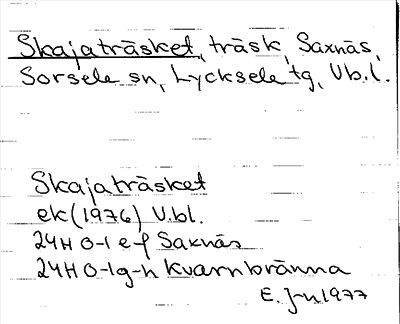 Skajaträsket, träsk, Saxnäs,
Sorsele sn, Lycksele tg, Vb.l.
Skajaträsket
ek (1976) V.bl.
24H 0-1 e-f Saxnäs
24H 0-1g-h Kvarnbränna
E. Jn 1977